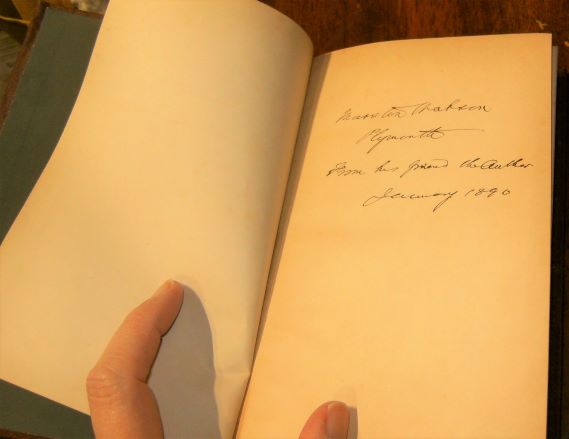 Marston Watson
Plymouth
From his friend the Author
January 1890